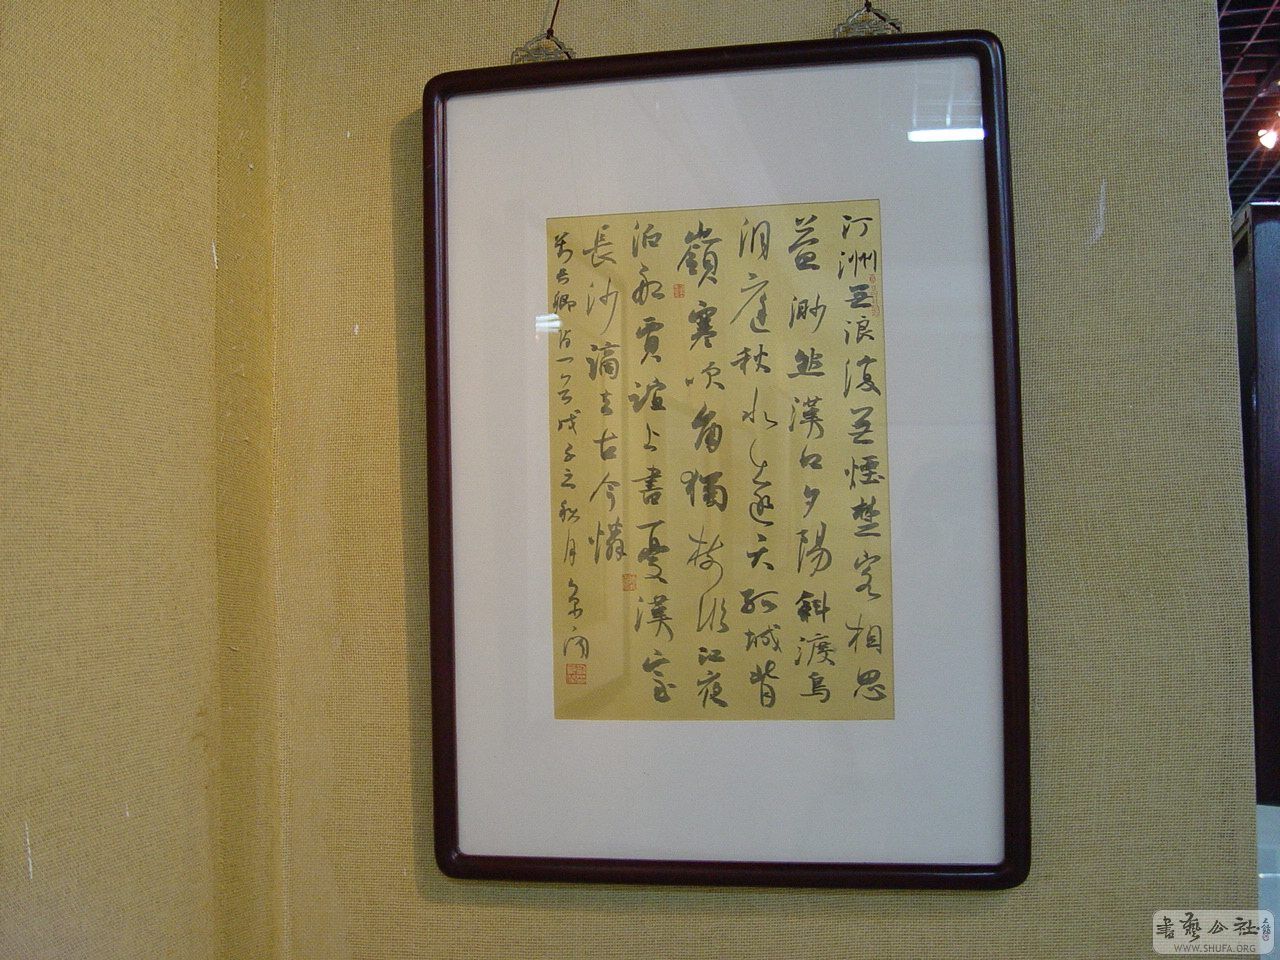 汀洲無浪復無煙楚客相思
益渺然漢口夕陽斜渡鳥
洞庭秋水遠連天孤城背
嶺寒吹角獨樹臨江夜
泊船賈誼上書憂漢室
長沙謫去古今憐
劉長卿詩一首戊子之秋月
書藝公社
WWW.SHUFA.ORG